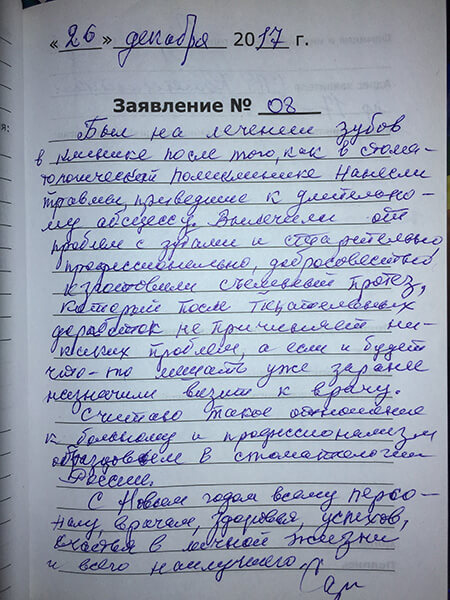 « 26 » декабря 2017 г.
Заявление № 08
Был на лечении зубов
в клинике после того, как в стома-
тологической поликлинике нанесли
травмы, приведшие к длительно-
му абсцессу. Вылечили от
проблем с зубами и старательно,
профессионально, добросовестно
изготовили съемный протез,
который после тщательных
доработок не причиняет ни-
каких проблем, а если и будет
что-то мешать уже заранее
назначили визит к врачу.
Считаю такое отношение
к больному и профессионализм
образцовым в стоматологии
России.
С Новым годом всему персо-
налу, врачам, здоровья, успехов,
счастья в личной жизни
и всего наилучшего.